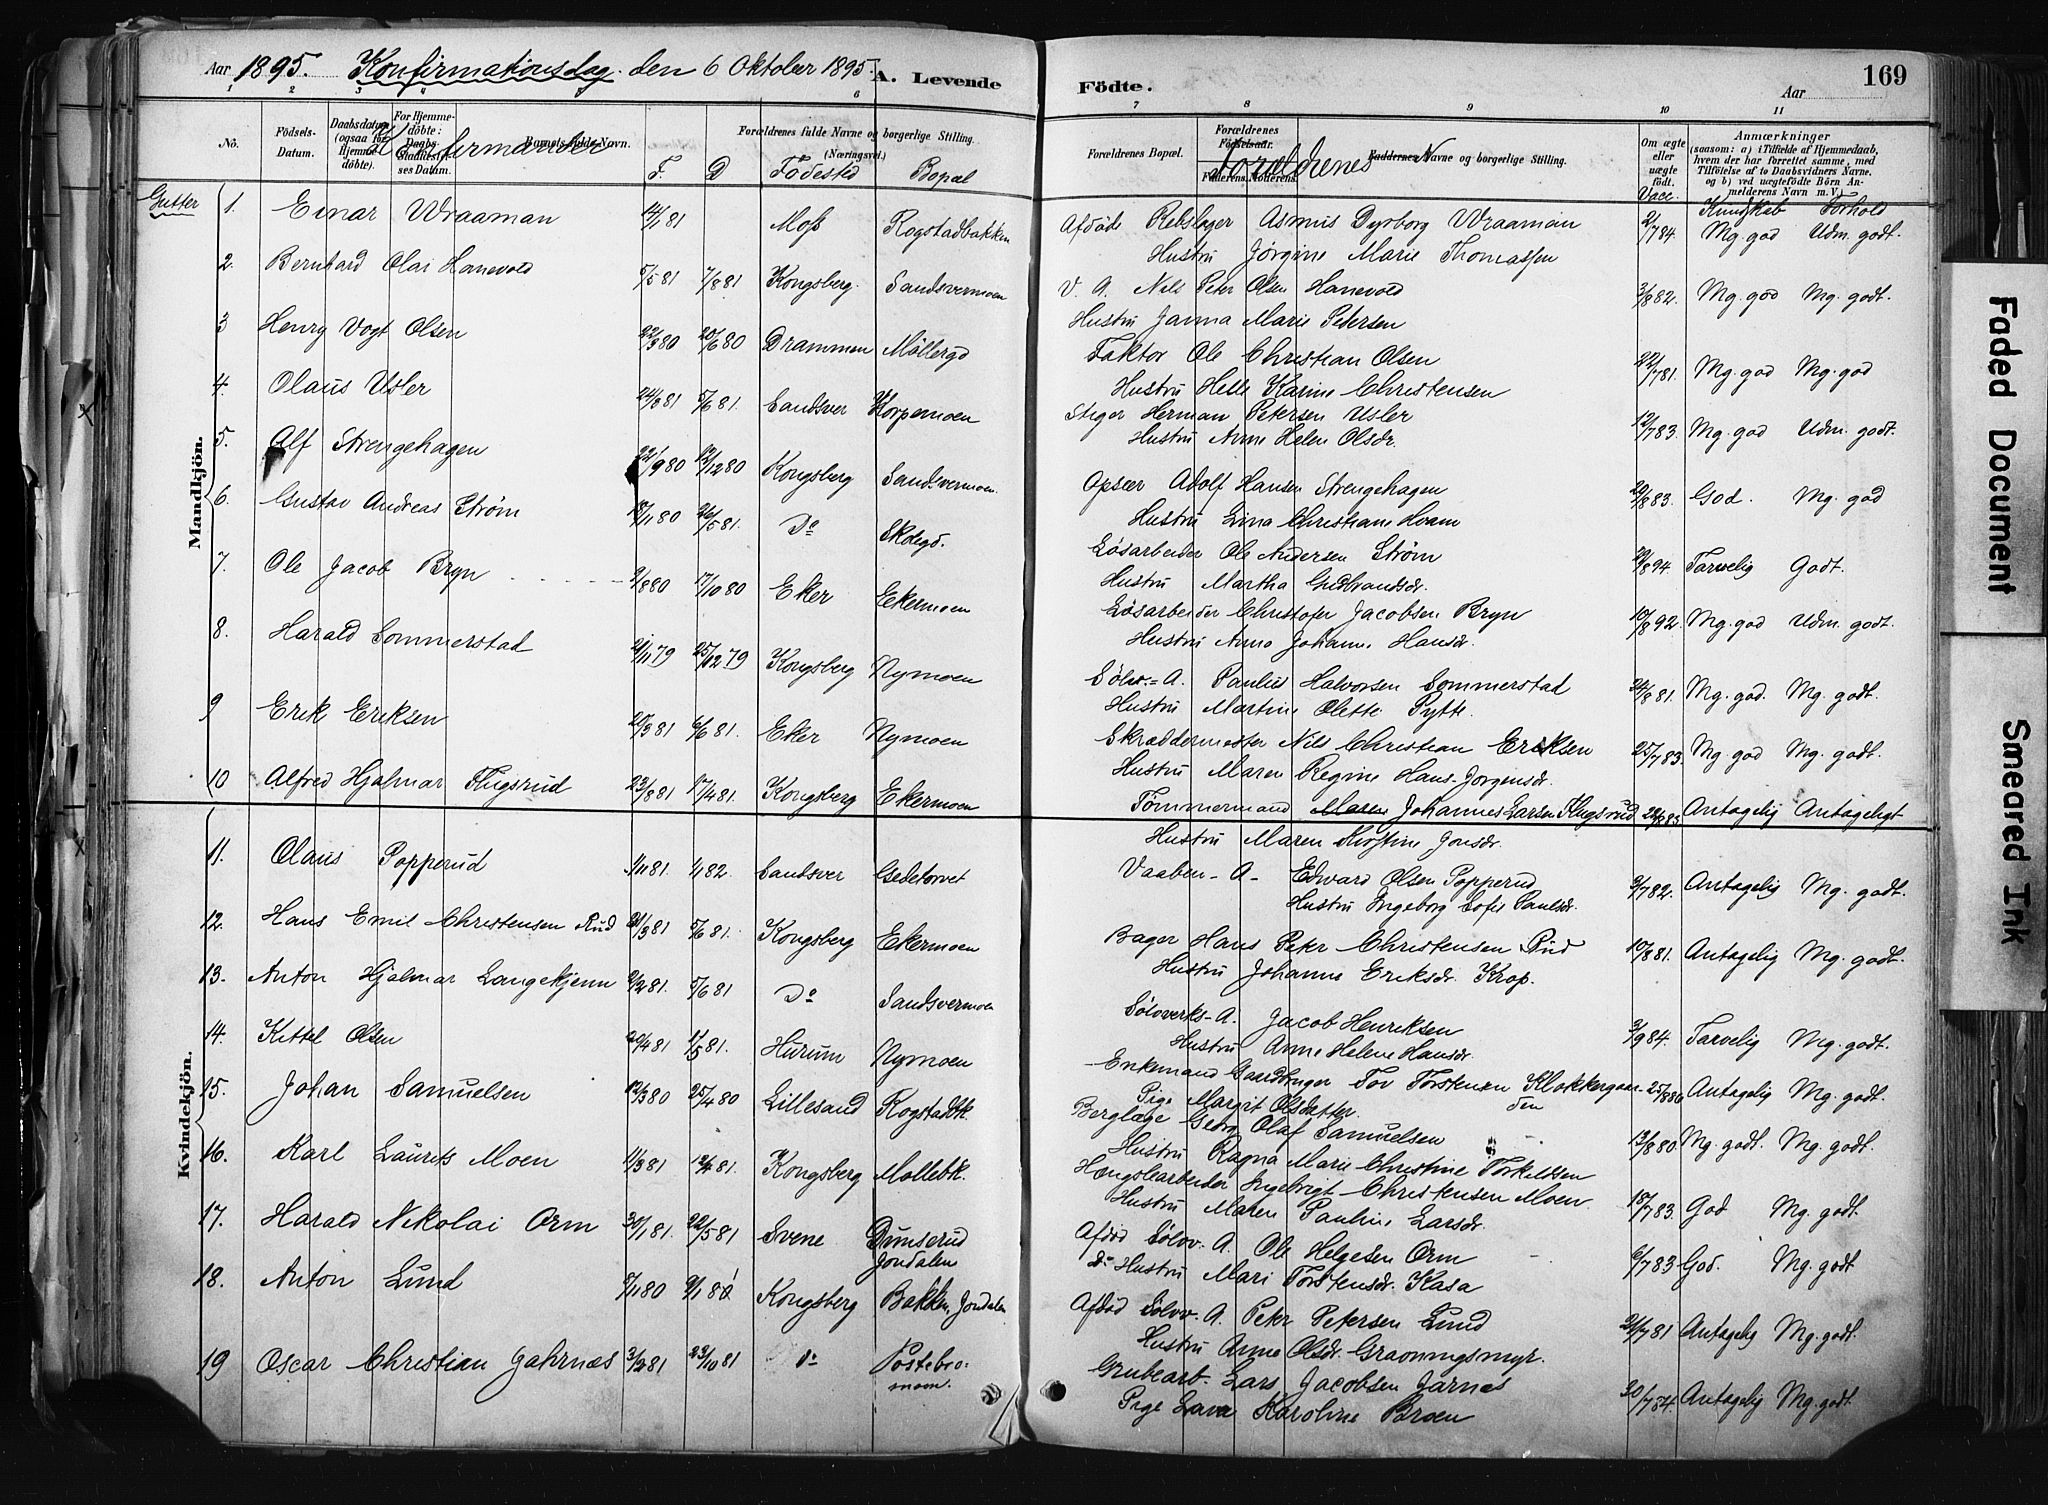 Aar 1895. Konfirmationsdag den 6 Oktober 1895. A. Levende Fødte. Aar 169
1 2 3 6 7 8 9 10 11
No. Födsels-Datum. Daabsdatum (ogsaa for Hjemmedöbte). For Hjemmedöbte: Barnets fulde Navn. Forældrenes fulde Navne og borgerlige Stilling. (Næringsvei.) Forældrenes Bopæl. Forældrenes Födselsaar. Faderens. Moderens. Faddernes Navne og borgerlige Stilling. Om ægte eller uægte födt. Anmærkninger (saasom: a) i Tilfælde af Hjemmedaab, hvem der har forrettet samme, med Tilföielse af to Daabsvidners Navne, og b) ved uegtefödte Börn Anmelderens Navn m. V.)
Konfirmander F. D Födested Bopæl Forældrenes N Vacc. Kundskab Forhold
Gutter
Mandkjön.
Kvindekjön.
1. Einar Wraaman 14/1 81 Moss Rogstadbakken Afdöde Rebslager Asmus Dyrborg Wraaman 2/7 84. Mg. god Udm. godt.
Hustru Jörgine Marie Thomassen
2. Bernhard Olai Hanevold 5/5 81 7/8 81 Kongsberg. Sandsvermoen V. A. Nils Peter Olsen Hanevold 3/8 82. Mg. god Mg. godt.
Hustru Janna Marie Petersen
3 Henry Vogt Olsen 22/3 80 20/6 80 Drammen Möllergd Faktor Ole Christian Olsen 22/7 81. Mg. god Mg. god
Hustru Helle Karine Christensen
4. Olaus Usler 24/3 81 5/6 81. Sandsver Korpemoen Stiger Herman Petersen Usler 12/7 83. Mg. god Udm. godt.
Hustru Anne Helen Olsdr.
5. Alf Strengehagen 22/9 80 12/12 80 Kongsberg Sandsvermoen. Opseer Adolf Hansen Strengehagen 29/8 83. God. Mg. god
Hustru Lina Christiane Hvam
6. Gustav Andreas Strøm 18/11 80 26/5 81. Do Skolegd. Løsarbeider Ole Andersen Strøm 29/8 94. Tarvelig Godt.
Hustru Martha Gudbrandsdr.
7. Ole Jacob Bryn 9/8 80 17/10 80 Eker Eekermoen Løsarbeider Christofer Jacobsen Bryn 10/8 92. Mg. god Udm. godt.
Hustru Anne Johanne Hansdr.
8. Harald Sommerstad 21/11 79 25/12 79 Kongsberg Nymoen Sölv.-A. Paulus Halvorsen Sommerstad 24/8 81. Mg. god. Mg. godt.
Hustru Martine Olette Pytte.
9 Erik Eriksen 20/3 81 6/6 81. Eker Nymoen Skræddermester Nils Christian Eriksen 25/7 83. Mg. god Mg. godt.
Hustru Maren Regine Hans-Jorgensdr.
10 Alfred Hjalmar Flugsrud 23/8 81 17/4 81. Kongsberg Ekermoen Tömmermand Maren Johannes Larsen Flugsrud 22/8 83 Antagelig Antageligt
Hustru Maren Kirstine Jonsdr.
11. Olaus Popperud 1/11 81. 1/1 82. Sandsver Gedetorvet Vaaben-A- Edward Olsen Popperud 3/7 82. Antagelig Mg. godt.
Hustru Ingeborg Sofie Paulsdr.
12. Hans Emil Christensen Rud 21/3 81 5/6 81. Kongsberg Ekermoen Bager Hans Peter Christensen Rud 10/8 81. Antagelig Mg. godt.
Hustru Johanne Eriksdr. Krop.
13. Anton Hjalmar Langekjenn 9/2 81. 5/6 81 Do Sandsvermoen Sölvverks-A. Jacob Henriksen 3/9 84. Tarvelig Mg. godt.
Hustru Anne Helene Hansdr.
14. Kittel Olsen 20/4 81 1/5 81. Hurum Nymoen Enkemand Gaardbruger Tov Torstensen Klokkergaarden 25/8 86 Antagelig Mg. godt.
Pige Margit Olsdatter.
15. Johan Samuelsen 12/3 80 25/4 80 Lillesand Rogstadbk Berglæge Georg Olaf Samuelsen 13/8 80 Mg. godt. Mg. godt.
Hustru Ragna Marie Christine Torkildsen
16. Karl Laurits Moen 11/3 81 12/4 81. Kongsberg Mollebk. Hængslearbeider Ingebrigt Christensen Moen 18/7 83. God Mg. godt.
Hustru Maren Pauline Larsdr.
17. Harald Nikolai Orm 30/1 81. 22/5 81 Svene Dunserud Jondalen Afdöd Sölvv. A. Ole Helgesen Orm 6/7 83 God. Mg. godt
Do Hustru Mari Torstensdr. Kasa
18. Anton Lund 8/1 80 9/1 80. Kongsberg Bakken, Jondalen Afdöd Sölvv. A. Peter Petersen Lund 21/7 81 Antagelig Mg. godt.
Hustru Anne Olsdr. Graaningsmyr.
19 Oscar Christian Jahrnæs 3/2 81 23/10 81 do Postebromoen. Grubearb. Lars Jacobsen Jarnes 30/7 84 Antagelig Mg. godt.
Pige Lava Karoline Broen
Faded Document
Smeared Ink